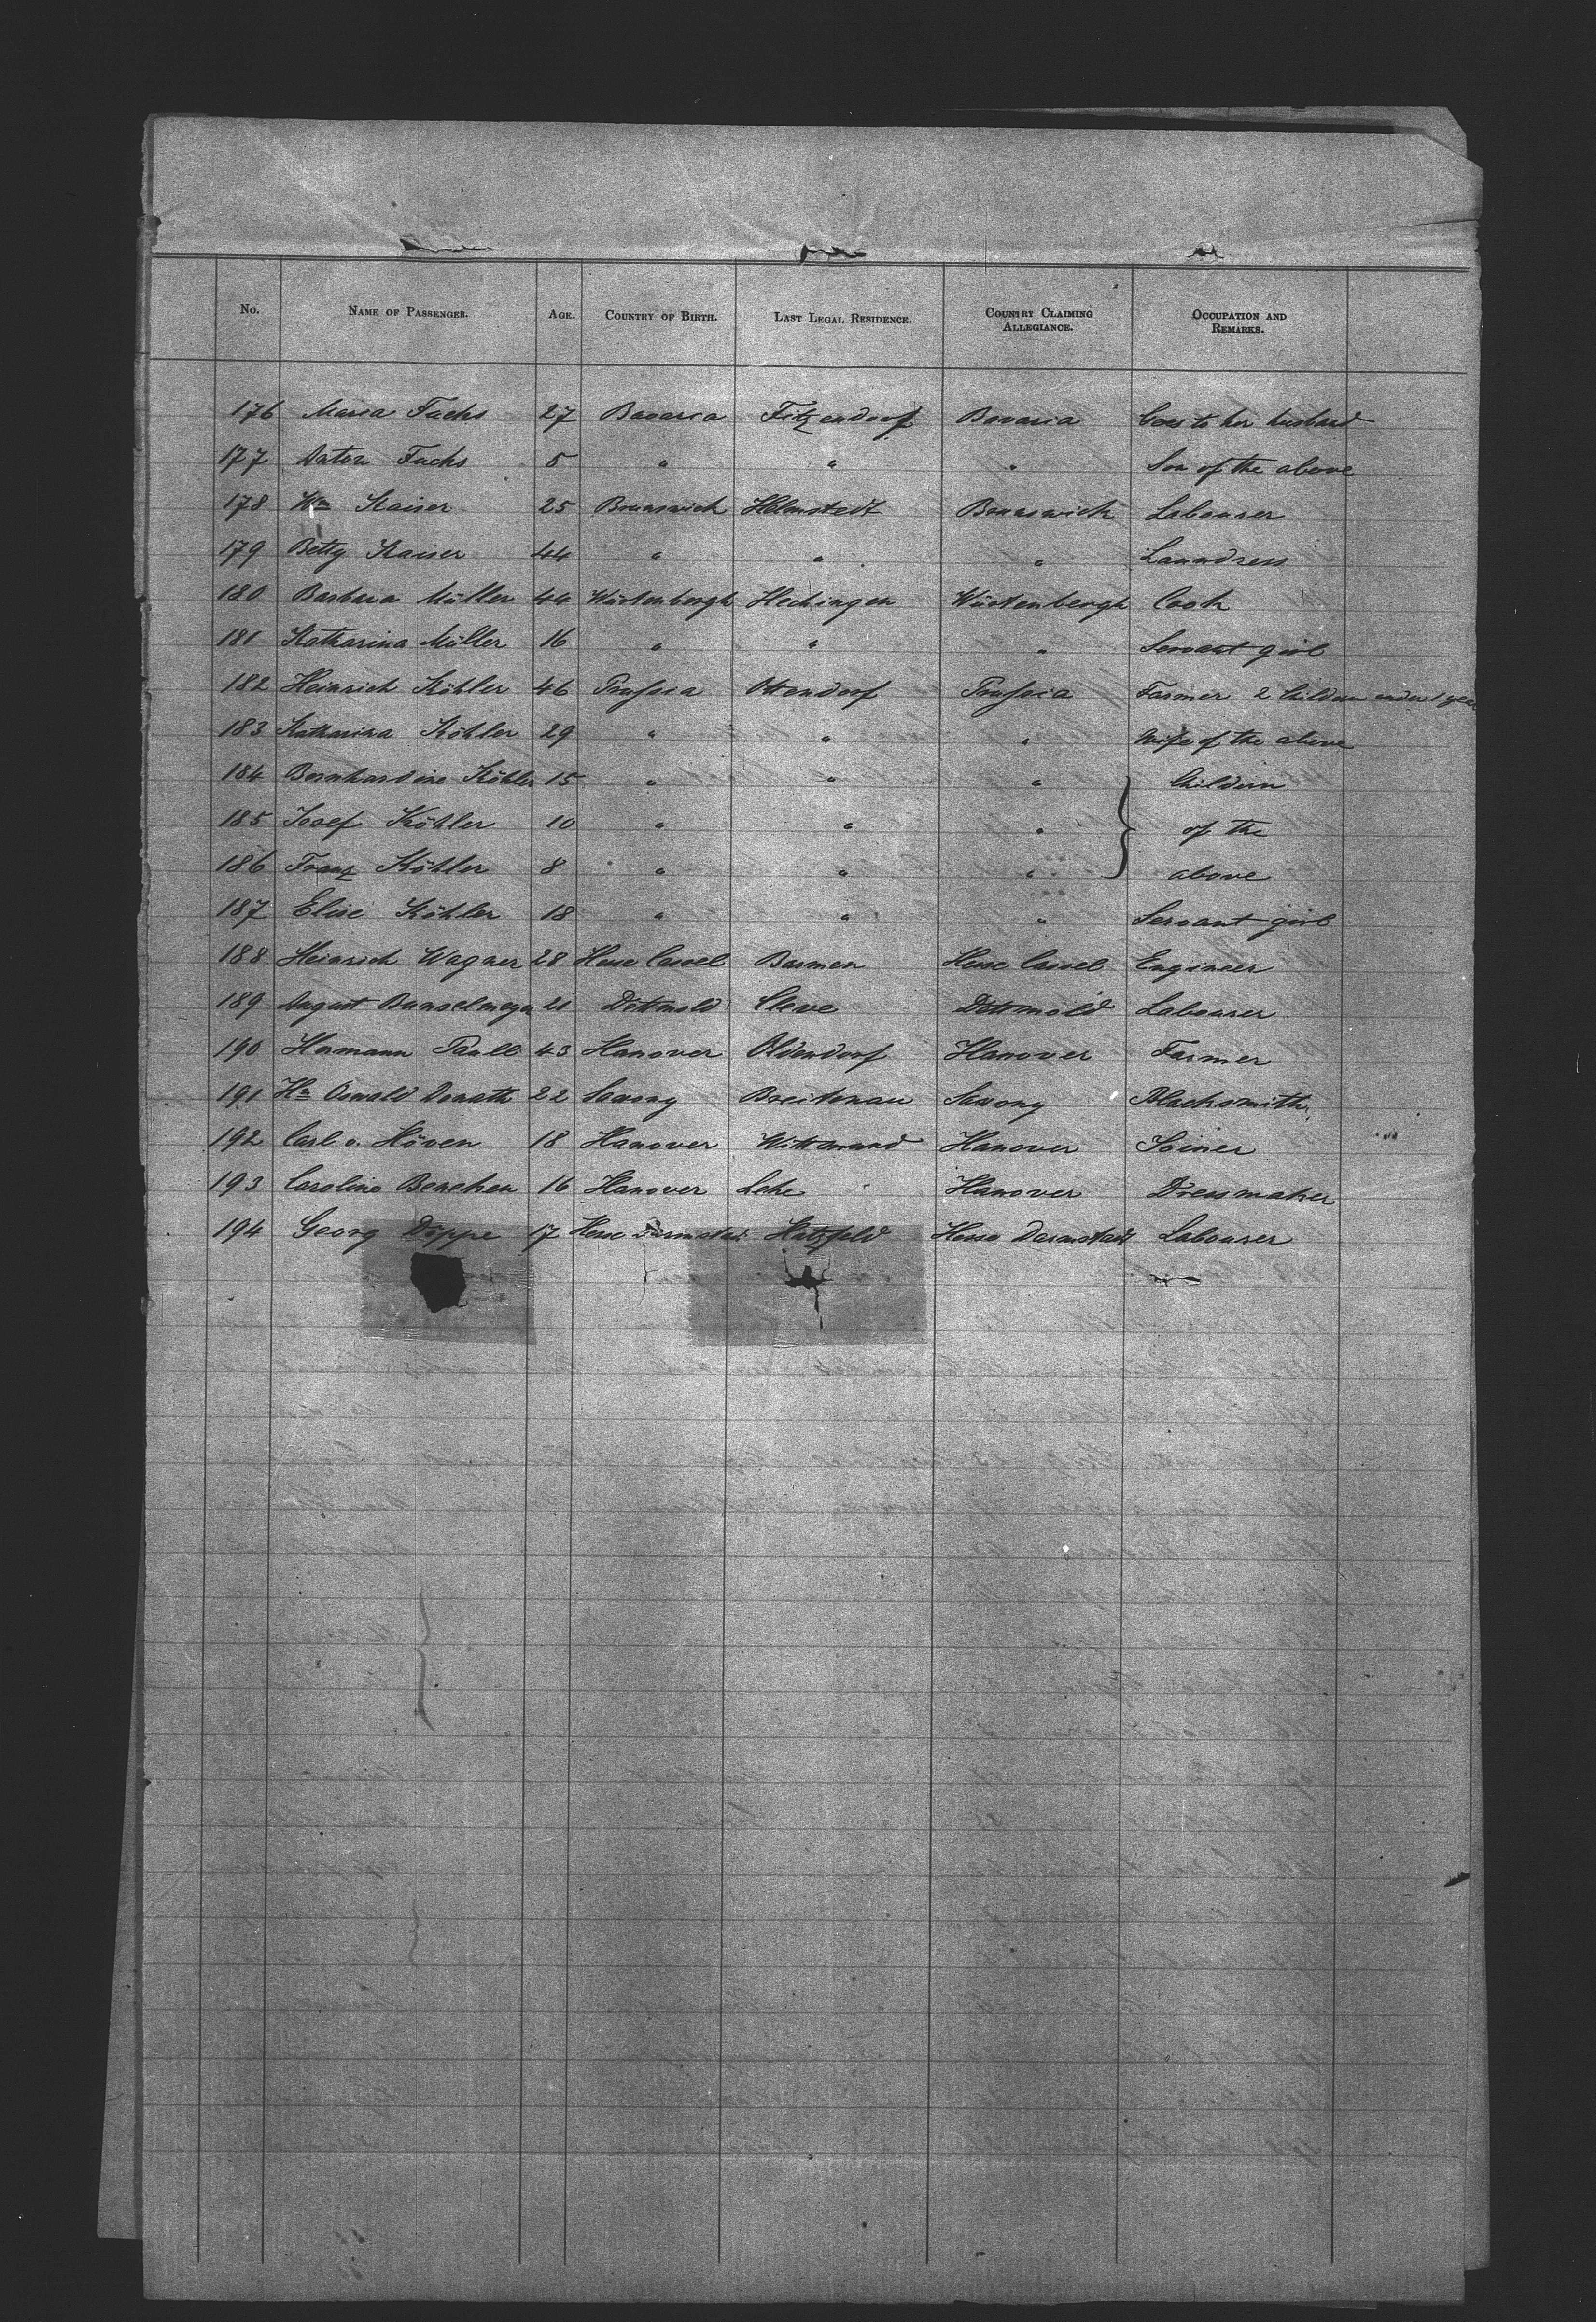 No. NAME OF PASSENGER. AGE. COUNTRY OF BIRTH. LAST LEGAL RESIDENCE. COUNTRY CLAIMING ALLEGIANCE. OCCUPATION AND REMARKS.
176 Maria Fuchs 27 Bavaria Fitzendorf Bavaria Goes to her husband
177 Anton Fuchs 5 " " " Son of the above
178 Wm Kaiser 25 Brunswick Helmstedt Brunswick Labourer
179 Betty Kaiser 44 " " " Laundress
180 Barbara Müller 44 Würtenbergh Hechingen Würtenbergh Cook
181 Katharina Müller 16 " " " Servant girl
182 Heinrich Köhler 46 Prussia Ottendorf Prussia Farmer 2 Children under 1 year
183 Katharina Köhler 29 " " " Wife of the above
184 Bernhardine Köhler 15 " " " } Children
185 Josef Köhler 10 " " " of the
186 Franz Köhler 8 " " " above
187 Elise Köhler 18 " " " Servant girl
188 Heinrich Wagner 28 Hesse Cassel Barmen Hesse Cassel Engineer
189 August Bunselmeyer 21 Dettmold Cleve Dettmold Labourer
190 Hermann Paull 43 Hanover Oldendorf Hanover Farmer
191 Hn Oswald Donath 22 Saxony Breitenau Saxony Blacksmith
192 Carl v. Höven 18 Hanover Wittmund Hanover Joiner
193 Caroline Benehen 16 Hanover Lehe Hanover Dressmaker
194 Georg Döppe 17 Hesse Darmstadt Hatzfeld Hesse Darmstadt Labourer